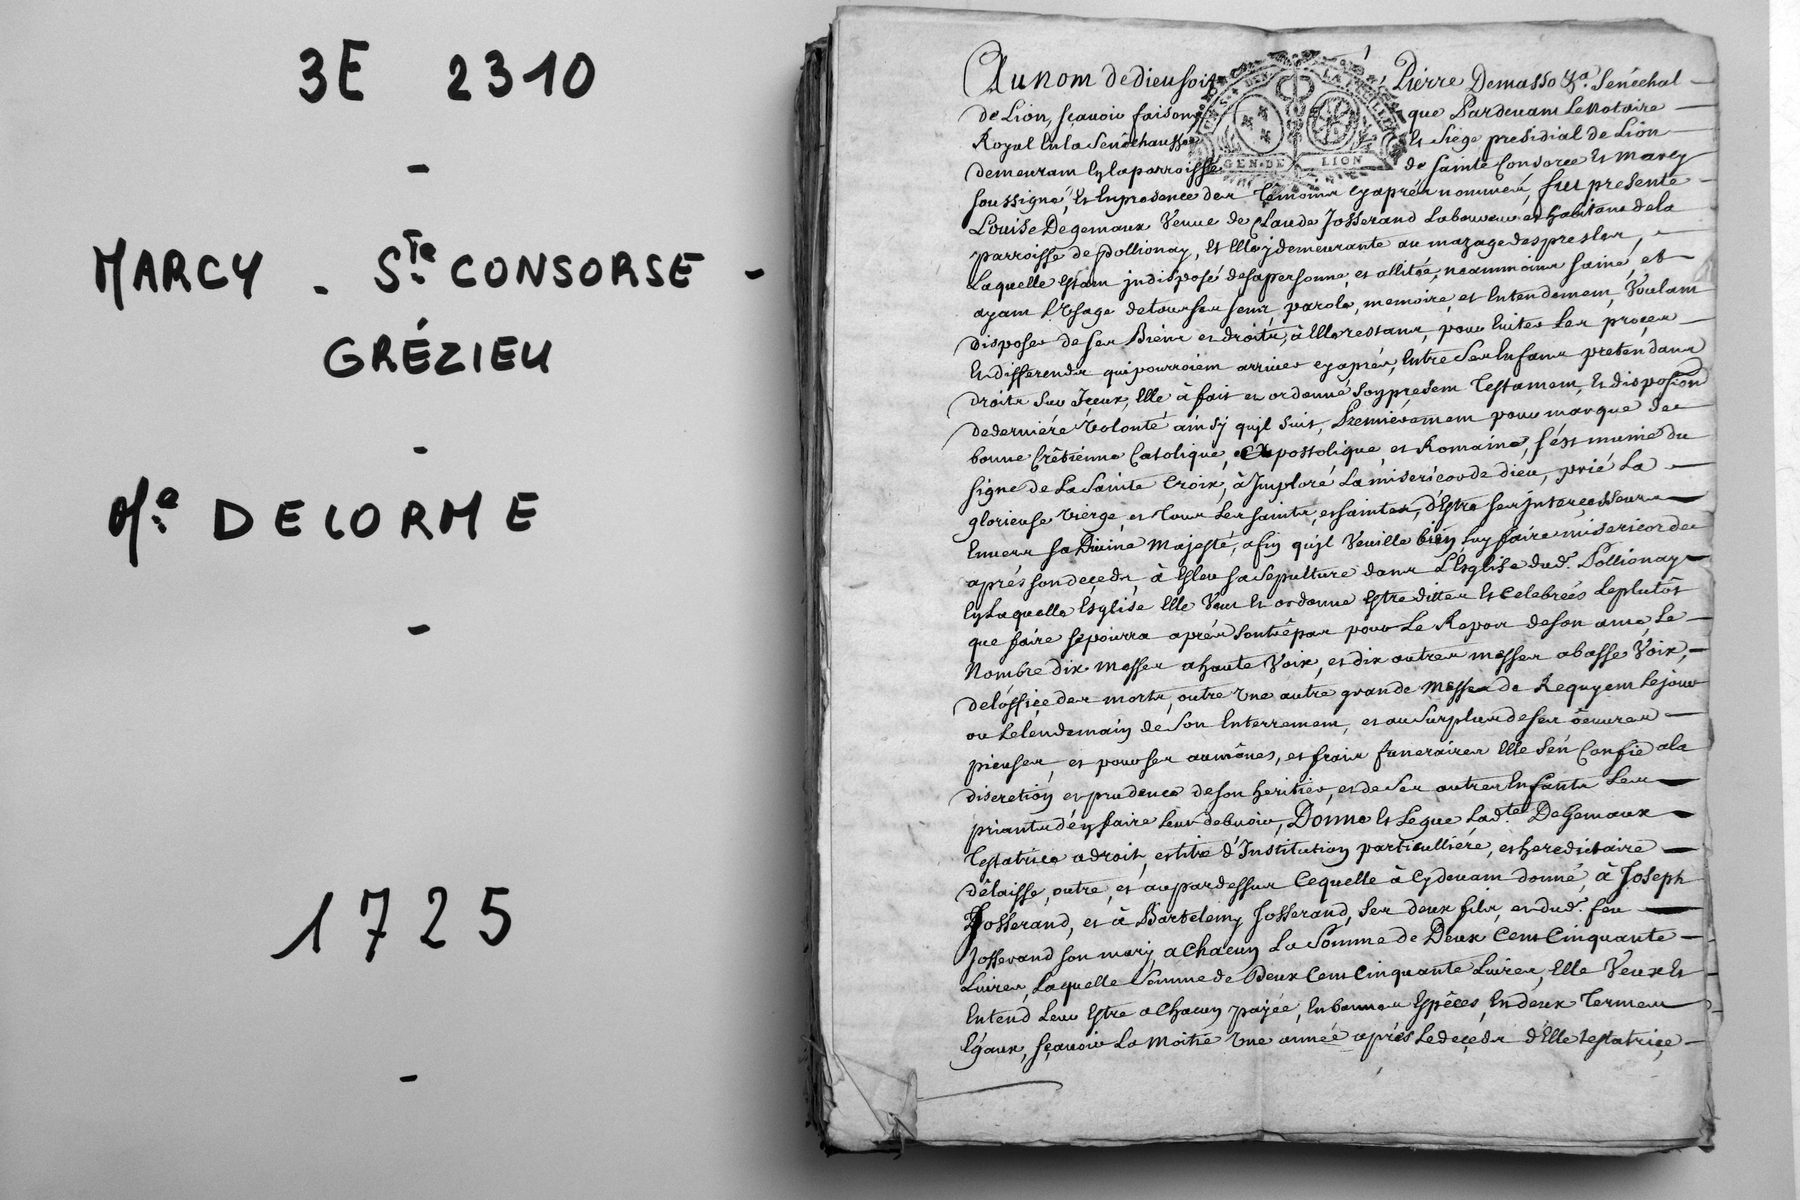 3E 2310
-
MARCY - Ste CONSORSE -
GRÉZIEU
-
Me DELORME
-
1725
-
GEN. DE LION
Au nom de dieu soit Pierre Demasso &a. Senéchal
de Lion, sçavoir faisons que Pardevant Le Notaire
Royal En la Senéchaussée Et Siége presidial de Lion
demeurant En la parroisse de Sainte Consorce Et Marcy
soussigné, Et En presence des Témoins cy aprés nommés, fut presente
Louise Degemaux Veuve de Claude Josserand Laboureur et habitant de la
parroisse de Pollionay, Et Elle y demeurante au mazage des presles,
Laquelle Estant indisposé de sa personne, et allitée, neanmoins saine, et
ayant L'Usage de tous ses sens, parole, memoire, et Entendement, Voulant
disposer de ses Biens et droits, à Elle restans, pour Eviter Les procez
Et differends qui pourroient arriver cy aprés, Entre Ses Enfans pretendans
droits sur Iceux, Elle à fait et ordonné son present Testament, Et disposion
de derniére Volonté ainsy qu'jl suit, Premiérement pour marque de
bonne Crêtienne Catolique, Apostolique, et Romaine, s'ést munie du
signe de La Sainte Croix, à Imploré La misericorde de dieu, prié La
glorieuse Vierge, et Tous Les saints, et saintes, d'Estre ses jntercesseurs
Envers sa Divine Majesté, afin qu'jl Veuille bién luy faire misericorde
aprés son deçeds, à Esleu sa sepulture dans L'Eglise dud. Pollionay
En Laquelle Esglise Elle Veut Et ordonne Estre dittes Et Celebrées Le plutôt
que faire se pourra aprés son trêpas pour Le Repos de son ame, Le
Nombre dix Messes a haute Voix, et dix autres messes a basse Voix,
de l'óffiçe des morts, outre Une autre grande Messe de Requyem Le jour
ou Le lendemain de Son Enterrement, et au Surplus de ses oeuvres
pieuses, et pour ses aumônes, et frais funeraires Elle S'én Confie a la
discretion et prudence de son heritier, et de Ses autres Enfants Les
priants d'én faire Leur debvoir, Donne Et Legue Ladte. Degemaux
Testatrice a droit, et titre d'Institution particulliére, et hereditaire
délaisse, outre, et au par dessus Ce quelle à Cy devant donné, à Joseph
Josserand, et à Bartelemy Josserand, Ses deux fils, et dud. feu
Josserand son mary, a Chacun La Somme de Deux Cent Cinquante
Livres, Laquelle Somme de Deux Cent Cinquante Livres, Elle Veux Et
Entend Leur Estre a Chacun payée, En bonnes Espêces, En deux Termes
Egaux, sçavoir La Moitié Une année aprés Le deçeds d'Elle testatriçe